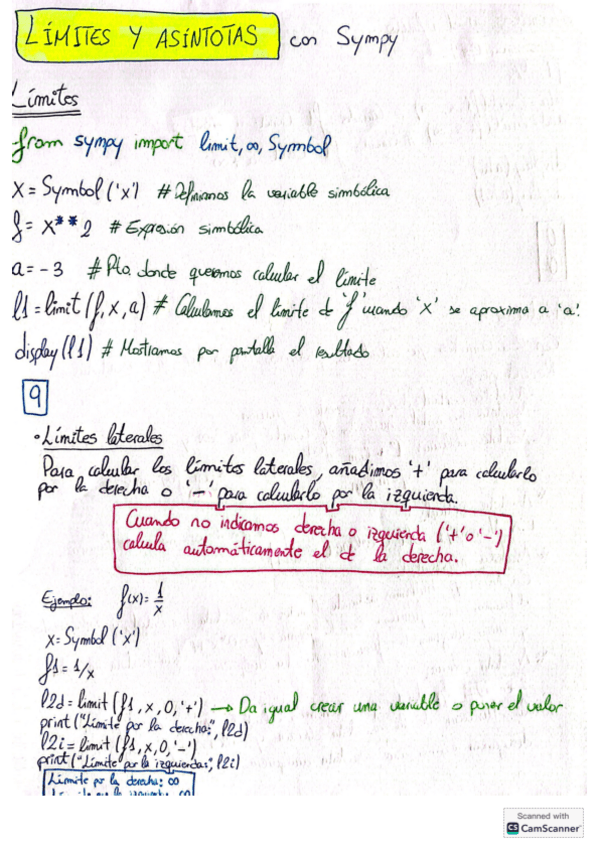 LÍMITES Y ASÍNTOTAS con Sympy
Límites
from sympy import limit, ∞, Symbol
x = Symbol ('x') # Definimos la variable simbólica
f = x**2 # Expresión simbólica
a = -3 # Pto. donde queremos calcular el límite
l1 = limit (f, x, a) # Calculamos el límite de 'f' cuando 'x' se aproxima a 'a'.
display (l1) # Mostramos por pantalla el resultado
9
• Límites laterales
Para calcular los límites laterales, añadimos '+' para calcularlo
por la derecha o '-' para calcularlo por la izquierda.
Cuando no indicamos derecha o izquierda ('+' o '-')
calcula automáticamente el de la derecha.
Ejemplo: f(x) = 1/x
x = Symbol ('x')
f1 = 1/x
l2d = limit (f1, x, 0, '+') → Da igual crear una variable o poner el valor
print ("Límite por la derecha:", l2d)
l2i = limit (f1, x, 0, '-')
print ("Límite por la izquierda:", l2i)
Límite por la derecha: ∞
Scanned with
CS CamScanner